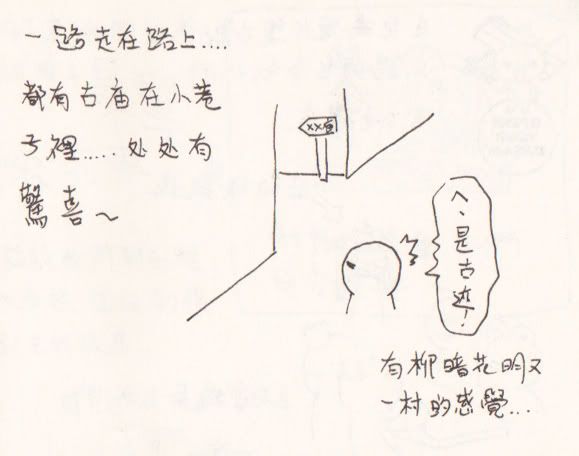 一路走在路上....
都有古庙在小巷
子裡.....处处有
驚喜~
XX宮
ㄟ、是古迹!
有柳暗花明又
一村的感覺...